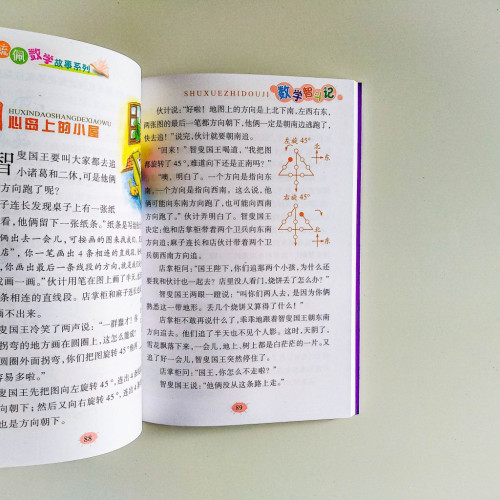 佩数学故事系列
HUXINDAOSHANGDEXIAOWU
心岛上的小屋
智
叟国王要叫大家都去追
小诸葛和二休,可是他俩
方向跑了呢?
子连长发现桌子上有一张纸
看,他俩留下一张纸条。"纸条是写给
俩出去一会儿,可按画的图来找我们,
店",你一笔画出 4 条相连的直线段,
,你画出最后一条线段的方向,就是我们
画一画。"伙计用笔在图上画了半天,
条相连的直线段。店掌柜和麻子连长
画不出来。
叟国王冷笑了两声说:"一群蠢才!
拐弯的地方画在圆圈上,这怎么能
圆圈外面拐弯,你们把图旋转 45°,
容易多啦。"
叟国王先把图向左旋转 45°,连出 4 条
方向朝下;然后又向右旋转 45°,连出 4
也是方向朝下。
88
SHUXUEZHIDOUJI
数学智斗记
伙计说:"好啦!地图上的方向是上北下南,左西右东,
两张图的最后一笔都方向朝下,他俩一定是朝南边逃跑了,
快去追!"说完,伙计就要朝南追。
"回来!"智叟国王喝道,"我把图
都旋转了 45°,难道向下还是正南吗?"
"噢,明白了。一个方向是指向东
南,一个方向是指向西南。这么说,他
俩可能向东南方向跑了,也可能向西南
方向跑了。"伙计弄明白了。智叟国王
决定:他和店掌柜带着两个卫兵向东南
方向追;麻子连长和店伙计带着两个卫
兵朝西南方向追。
左旋 45°
北
东
右旋 45°
北
东
店掌柜问:"国王陛下,你们追那两个小孩,为什么还
要我和伙计也一起去?店里没人看门,烧饼丢了怎么办?"
智叟国王两眼一瞪说:"叫你们两人去,是因为你俩
熟悉这一带地形。丢几个烧饼又算得了什么!"
店掌柜不敢再说什么了,乖乖地跟着智叟国王朝东南
方向追去。他们追了半天也不见个人影。这时,天阴了,
雪花飘落下来,一会儿,地上、树上都是白茫茫的一片。又
追了好一会儿,智叟国王突然停住了。
店掌柜问:"国王,你怎么不走啦?"
智叟国王说:"他俩没从这条路上走。"
89